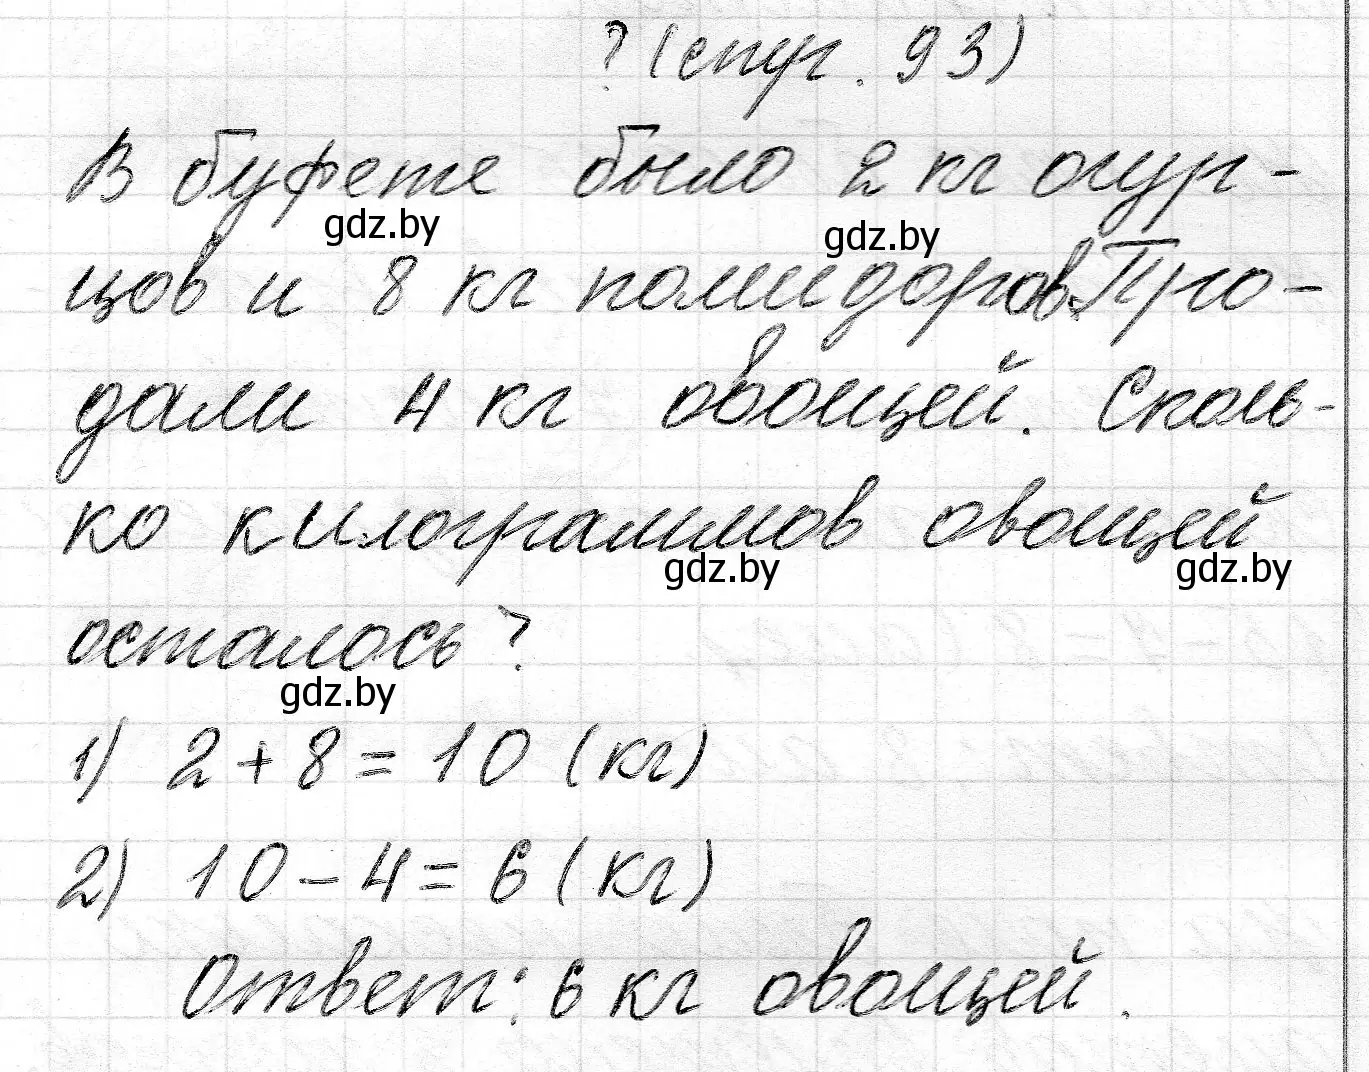 ? (стр. 93)
В буфете было 2 кг огур-
gdz.by gdz.by
цов и 8 кг помидоров. Про-
дали 4 кг овощей. Сколь-
ко килограммов овощей
gdz.by gdz.by
осталось?
gdz.by
1) 2 + 8 = 10 (кг)
2) 10 - 4 = 6 (кг)
Ответ: 6 кг овощей.